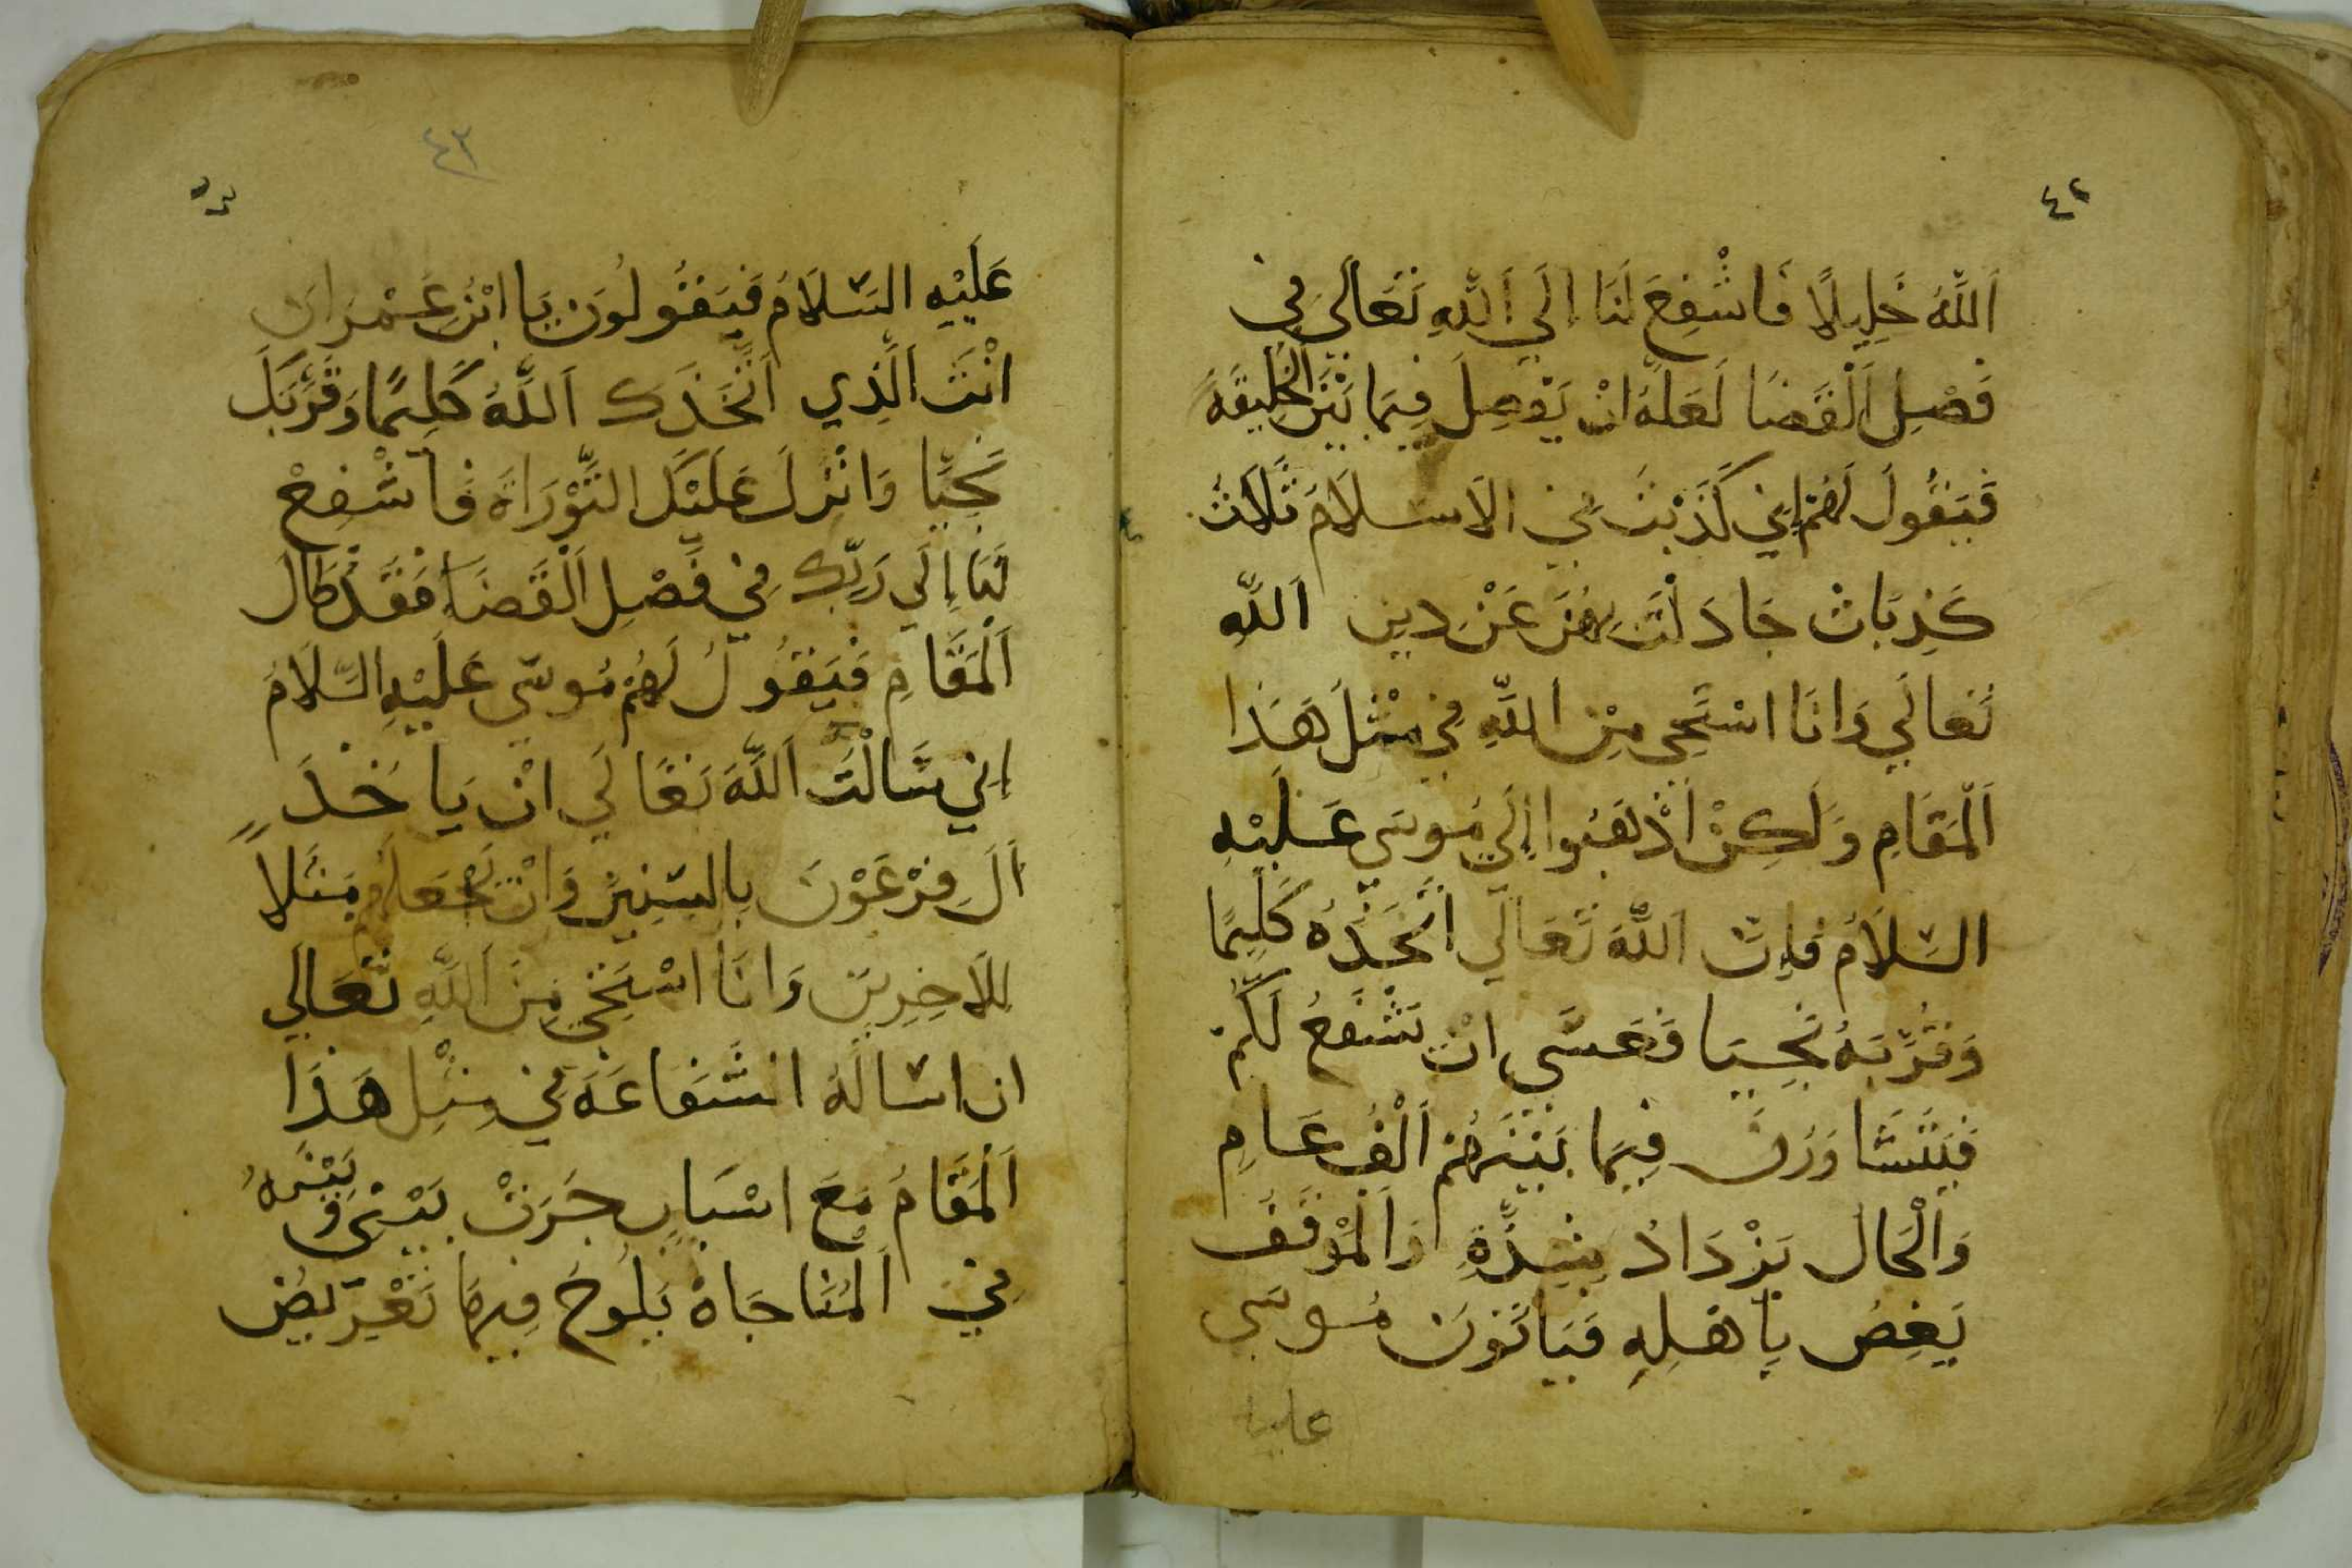 ٤٢
اَللَّهُ خَلِيلًا فَاشْفِعَ لَنَا اِلَي اَللَّهِ تَعَالَي فِي
فَصْلِ اَلْقَضَا لَعَلَّهُ انْ يَفصِلَ فِيمَا بَيْنَ الْخَلِيقَةَ
فَيَقُولَ لَهُمْ اِنِي كَذَبْتُ فِي الاسلَامَ ثَلَاثُ
كَذِبَاتْ جَادَلْتَ بِهِنَ عَنْ دِينِ اَللَّهِ
تَعالَي وَانَا اسْتَحِي مِنْ اَللَّهِ فِي مِثْلَ هَذَا
اَلْمَقَامِ وَلَكِنْ اَذْهَبُوا اِلَي مُوسَي عَلَيْهِ
السَّلَامُ فَاِنْ اَللَّهَ تَعَالَي اَتَّخَذُهُ كَلِيمًا
وَقَرَّبَهُ نَجِيَا فَعَسَي انْ يَشْفَعُ لَكُمْ
فَيَتَشَاوَرُنَ فِيمَا بَيْنَهُمْ اَلْفُ عَامٍ
وَاَلْحَال يَزْدَادُ بِشِدَّةِ وَاَلْمَوْقَفُ
يَغِصُ بِاهلِهِ فَيَاتَوْنَ مُوسَي
عليه
٤٣
عَلَيْهِ السَّلَامُ فَيَقُولُونَ يَا ابْنُ عِمْرَان
انْتَ اَلَّذِي اَتَّخَذَكَ اَللَّهُ كَلِيمًا وَقَرَّبَكَ
نَجِيًّا وَانْزَلَ عَلَيْكَ التَّوْرَاةَ فَاشْفِعْ
لَنَا اِلَي رَبِّكَ فِي فَصْلِ اَلْقَضَاءِ فَقَدْ طَالَ
اَلْمَقَامِ فَيَقُولُ لَهُمْ مُوسَي عَلَيْهِ السَّلَامُ
اِنِي سَالْتَ اَللَّهَ تَعَالَي انْ يَاخُذَ
اَلَ فِرْعَوْنَ بِالسِّنِينَ وَانْ يَجْعَلَهُمْ مَثَلاً
لِلاَخِرِينَ وَانَا اسْتَحِي مِنَ اَللَّهِ تَعَالَي
ان اسَالَهُ الشَّفَاعَةَ فِي مِثْلِ هَذَا
اَلْمَقَامُ مَعَ اسْبَابٍ جَرَتْ بَيْنِي وَبَيْنَهُ
فِي اَلْمُنَاجَاهْ يَلُوحُ فِيهَا تَعْرِيضُ